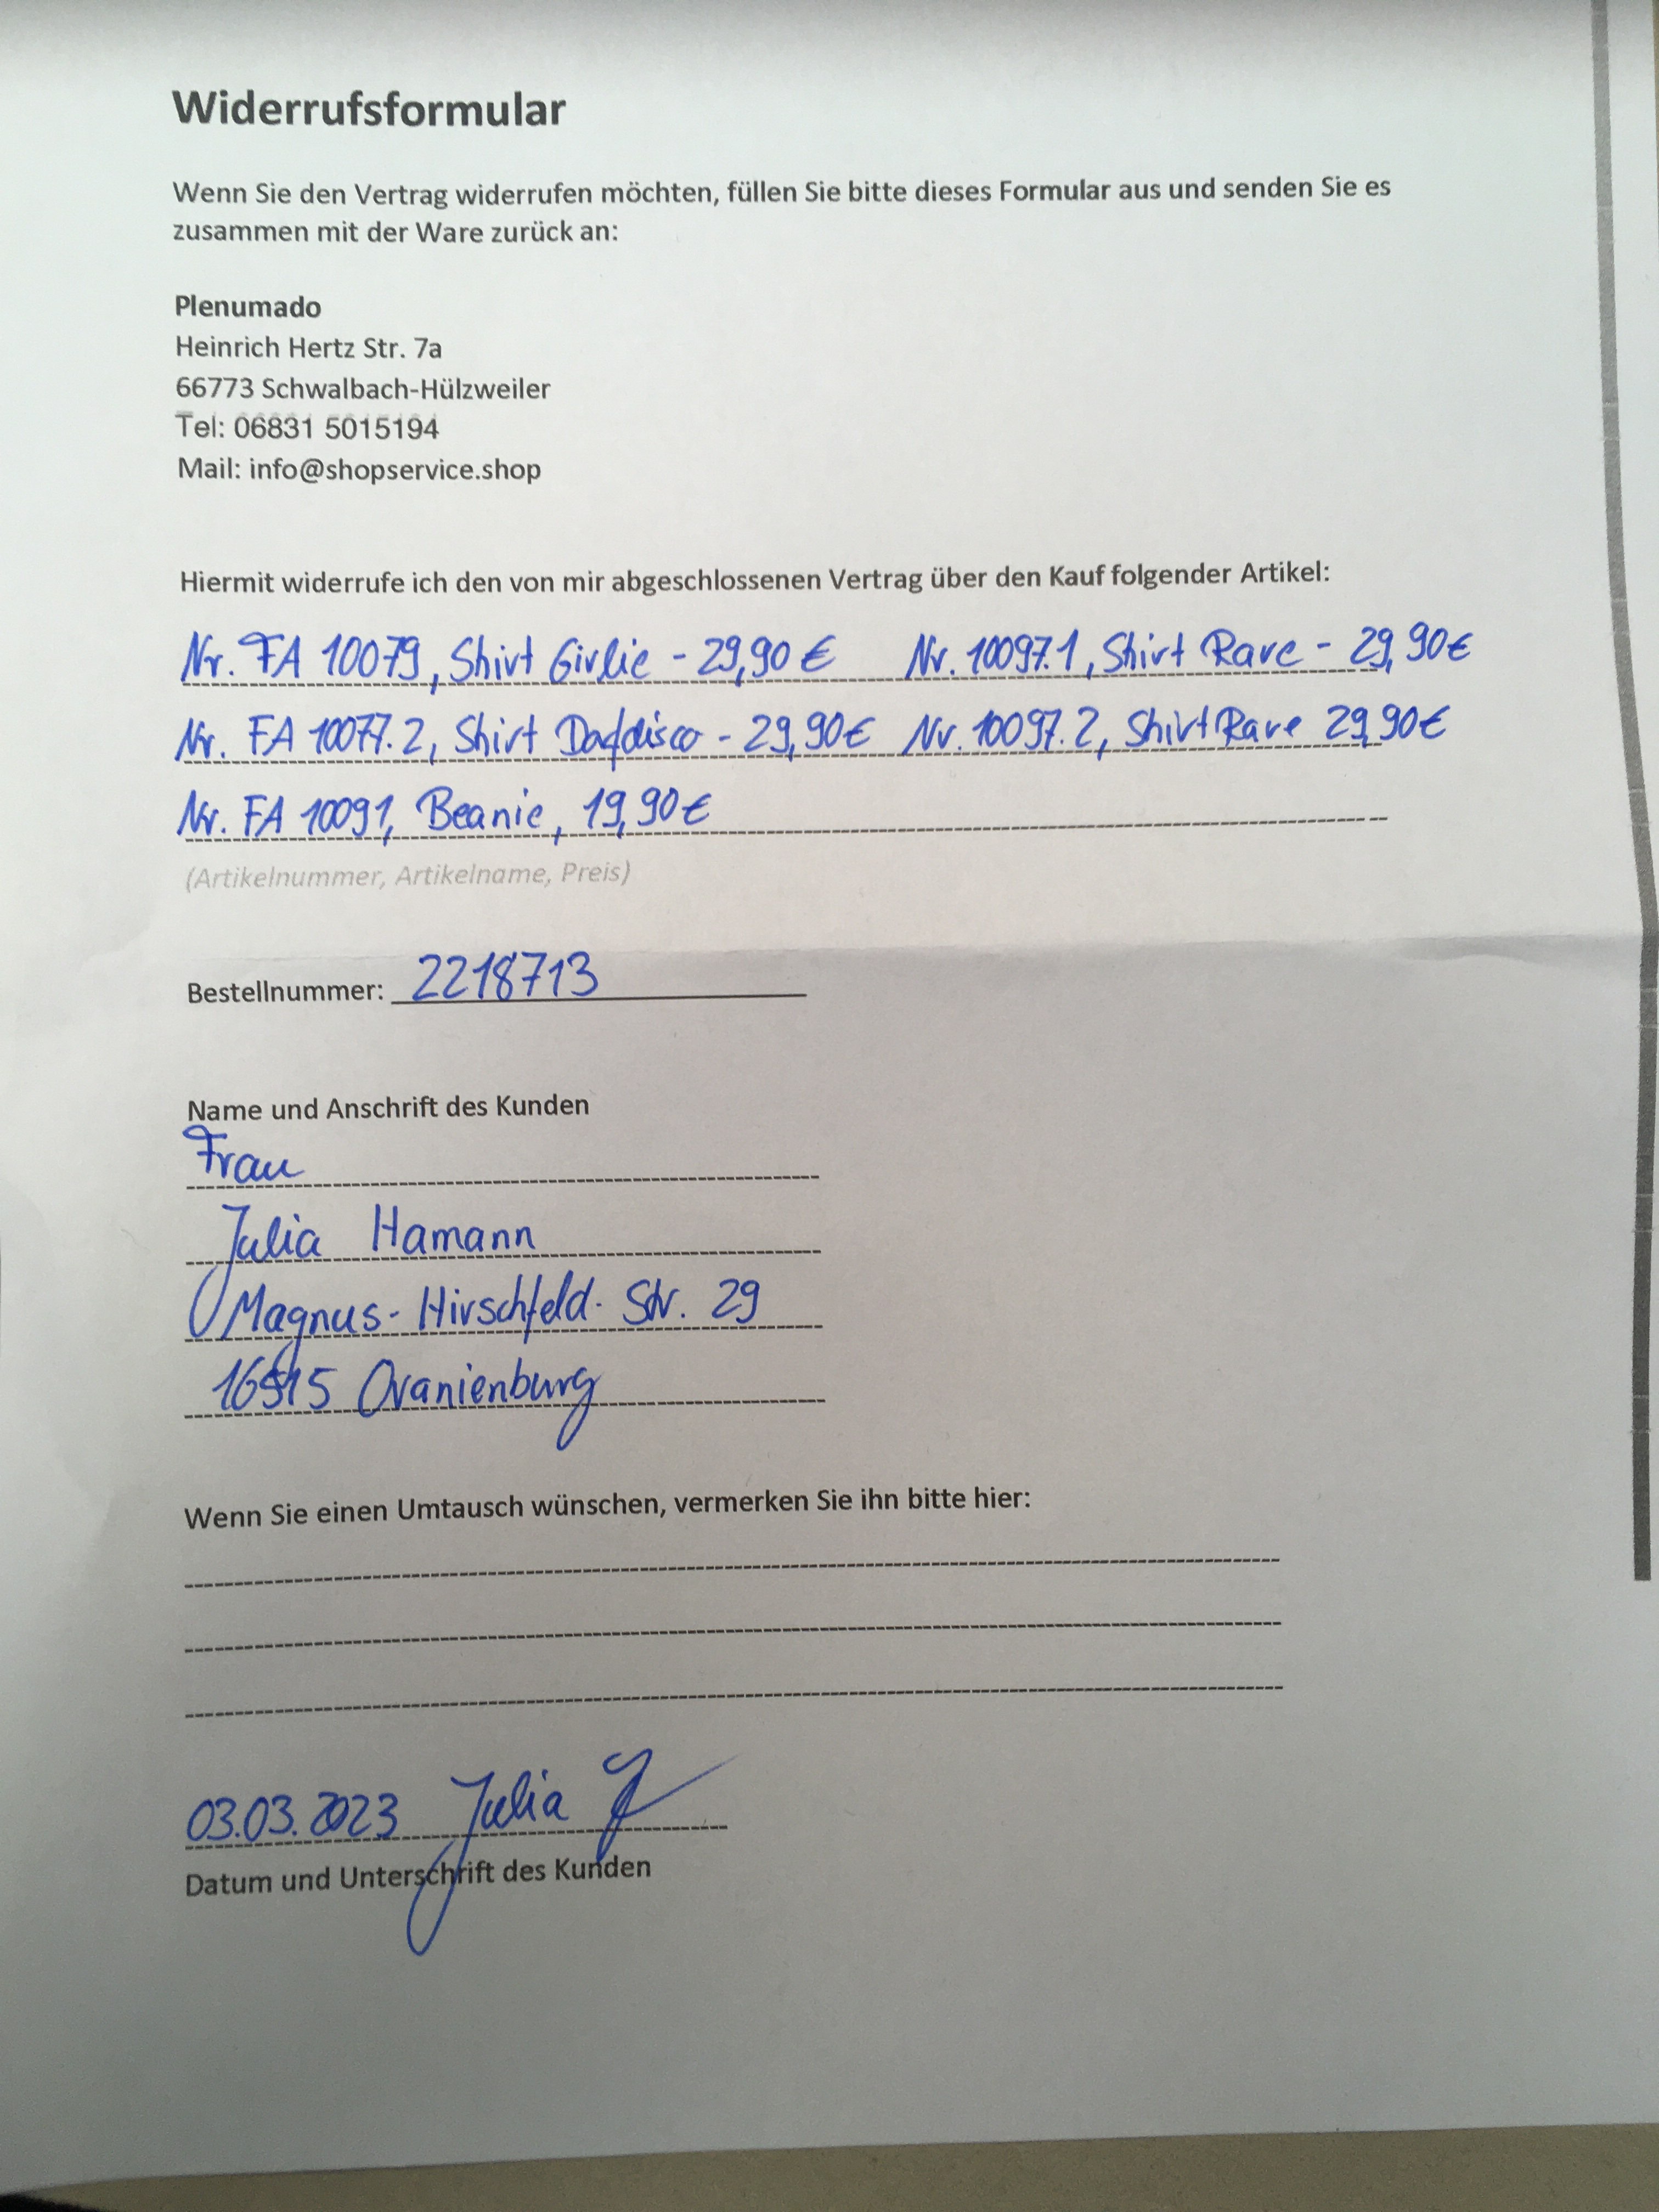 Widerrufsformular
Wenn Sie den Vertrag widerrufen möchten, füllen Sie bitte dieses Formular aus und senden Sie es
zusammen mit der Ware zurück an:
Plenumado
Heinrich Hertz Str. 7a
66773 Schwalbach-Hülzweiler
Tel: 06831 5015194
Mail: info@shopservice.shop
Hiermit widerrufe ich den von mir abgeschlossenen Vertrag über den Kauf folgender Artikel:
Nr. FA 10079, Shirt Girlie - 29,90 € Nr. 10097.1, Shirt Rave - 29,90€
Nr. FA 10077.2, Shirt - 29,90€ Nr. 10097.2, Shirt Rave 29,90€
Nr. FA 10091, Beanie, 19,90€
(Artikelnummer, Artikelname, Preis)
Bestellnummer: 2218713
Name und Anschrift des Kunden
Frau
Julia Hamann
Magnus-Hirschfeld-Str. 29
16515 Oranienburg
Wenn Sie einen Umtausch wünschen, vermerken Sie ihn bitte hier:
03.03.2023 Julia
Datum und Unterschrift des Kunden